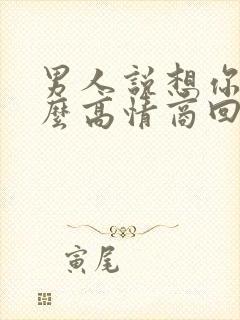 男人說想你
麼高情商回
寅尾